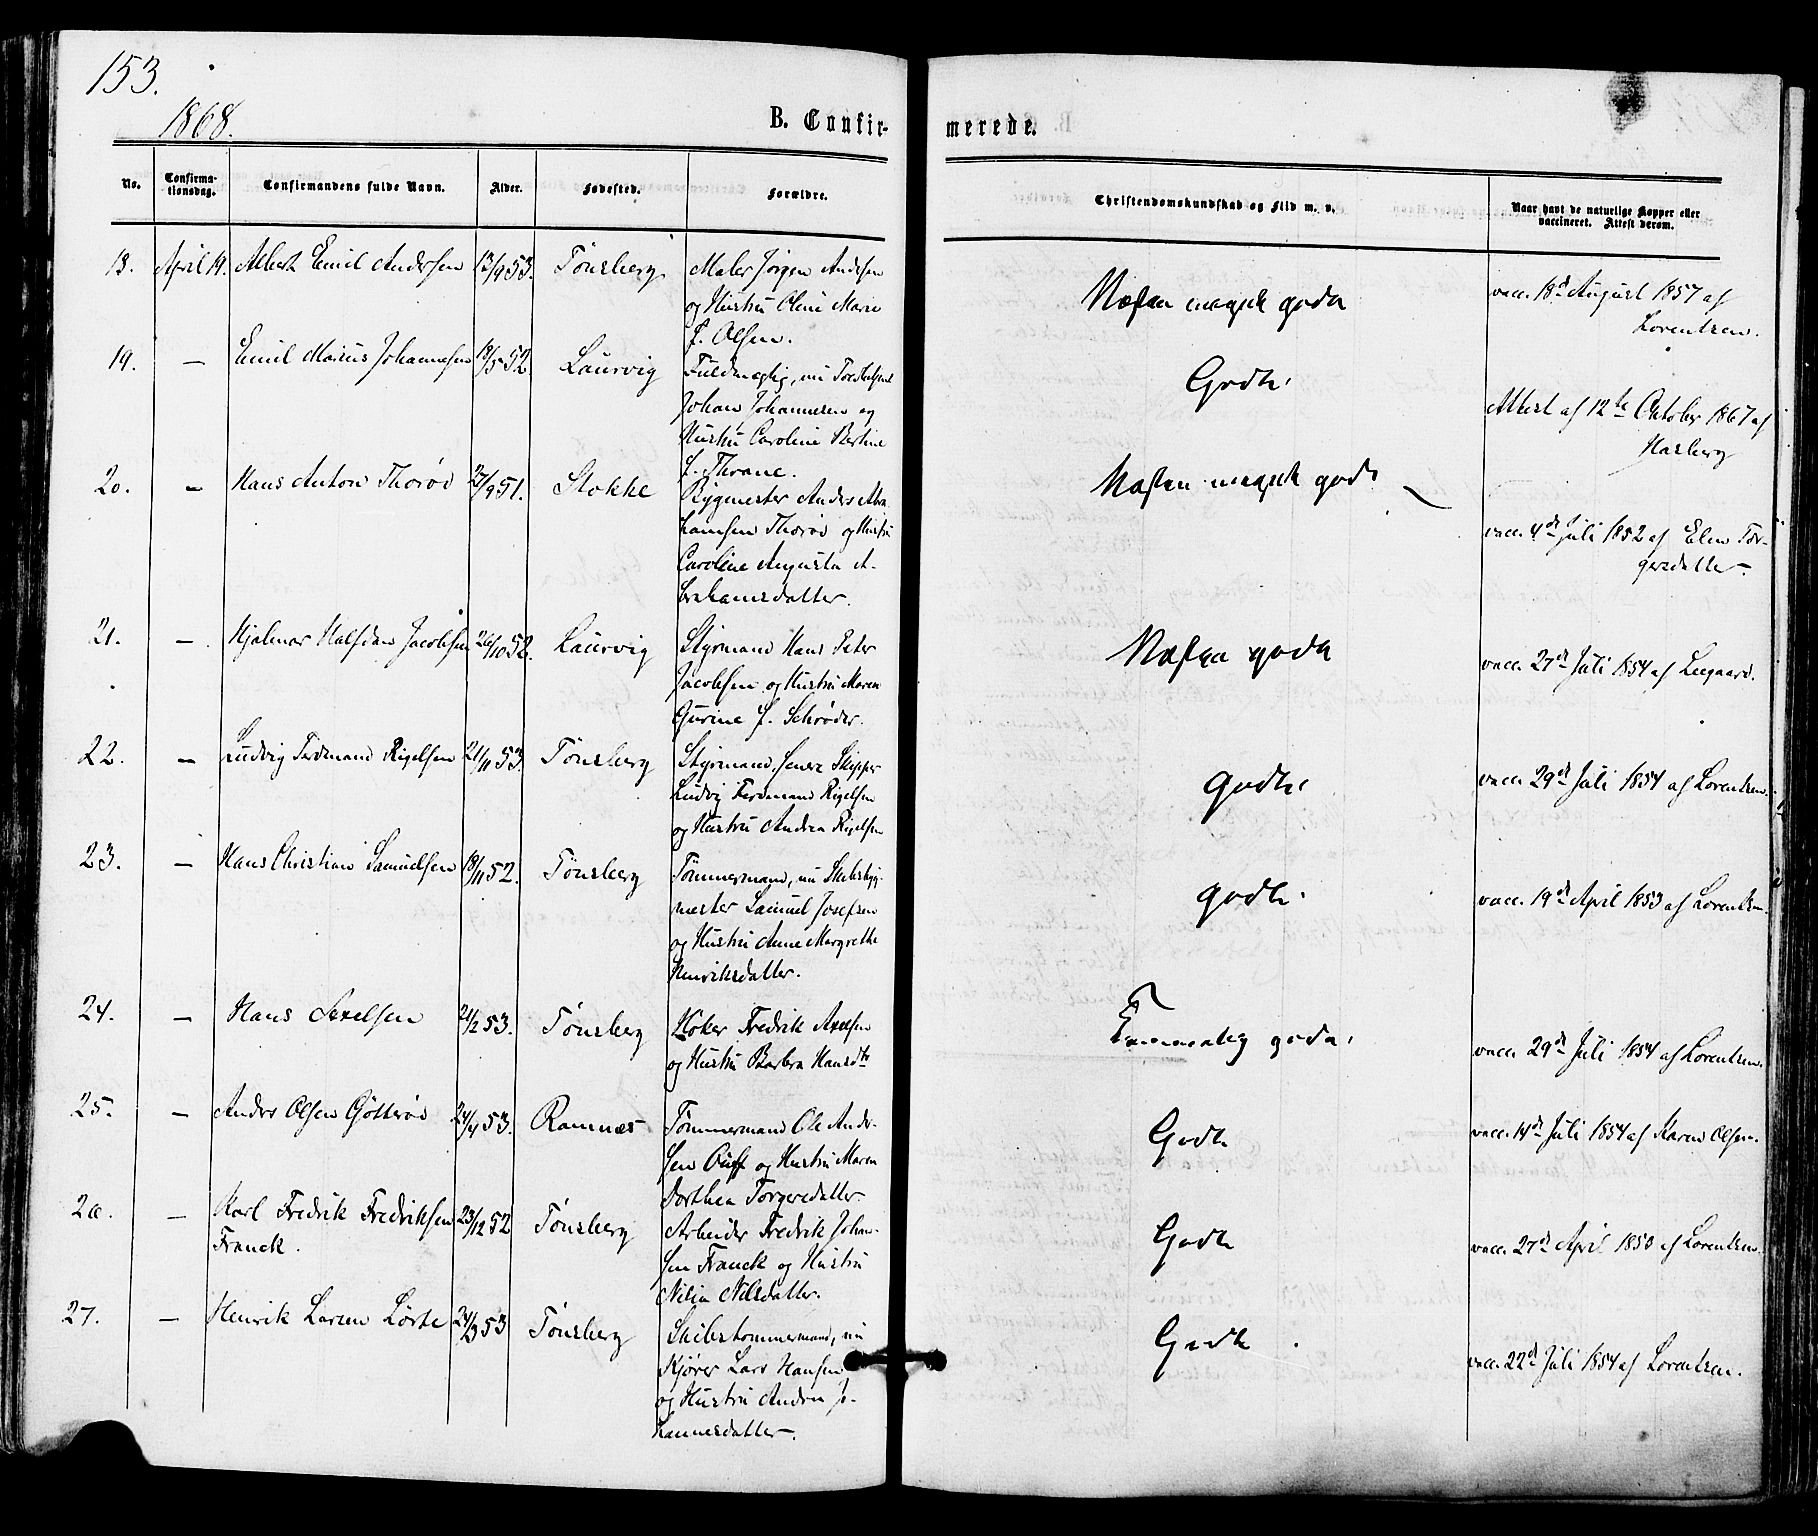 153.
1868.
B. Confirmerede.
No. Confirmationsdag. Confirmandens fulde Navn. Alder. Fødested. Forældre. Christendomskundskab og Flid m. v. Naar havt de naturlige Kopper eller vaccineret. Attest derom.
18. April 19. Albert Emil Andersen 13/9 53. Tønsberg. Maler Jørgen Andersen
og Hustru Oline Marie
f. Olsen.
Næsten meget godt
vacc. 18d August 1857 af
Lorentzen.
19. — Emil Marius Johannesen 18/5 52. Laurvig Fuldmægtig, nu
Johan Johannesen og
Hustru Caroline Bertine
f. Thrane.
Godt.
Attest af 12te Oktober 1867 af
20. — Hans Anton Thorød 27/9 51. Stokke Bygmester Anders Abra
hamsen Thorød og Hustru
Caroline Augusta A-
brahamsdatter.
Næsten meget godt
vacc. 4de Juli 1852 af Elen Tor-
gersdatter.
21. — Hjalmar Halfdan Jacobsen 26/10 52. Laurvig Styrmand Hans Peter
Jacobsen og Hustru Maren
Gurine f. Schrøder.
Næsten godt
vacc. 27de Juli 1854 af Leegaard.
22. — Ludvig Ferdinand Rigelsen 21/11 53. Tønsberg Styrmand, senere Skipper
Ludvig Ferdinand Rigelsen
og Hustru Andrea Rigelsen
godt.
vacc. 29de Juli 1854 af Lorentzen.
23. — Hans Christian Samuelsen 18/11 52. Tønsberg Tømmermand, nu Skibsbyg-
mester Samuel Josefsen
og Hustru Anne Margrethe
Henriksdatter.
godt.
vacc. 19de April 1853 af Lorentzen.
24. — Hans Axelsen 21/2 53. Tønsberg Høker Fredrik Axelsen
og Hustru Barbra Hansdtr
Temmelig godt.
vacc. 29de Juli 1854 af Lorentzen.
25. — Anders Olsen Götterød 24/4 53. Ramnæs Tømmermand Ole Ander-
sen og Hustru Maren
Dorthea Torgersdatter
Godt
vacc. 14de Juli 1854 af Karen Olsen.
26. — Karl Fredrik Fredriksen
Franck. 23/12 52 Tønsberg Arbeider Fredrik Johan-
sen Franck og Hustru
Nilia Nilsdatter.
Godt
vacc. 27de April 1853 af Lorentzen.
27. — Henrik Larsen Lørte 24/3 53 Tønsberg Skibstømmermand, nu
Kjører Lars Hansen
og Hustru Andrea Jo-
hannesdatter.
Godt
vacc. 22de Juli 1854 af Lorentzen.